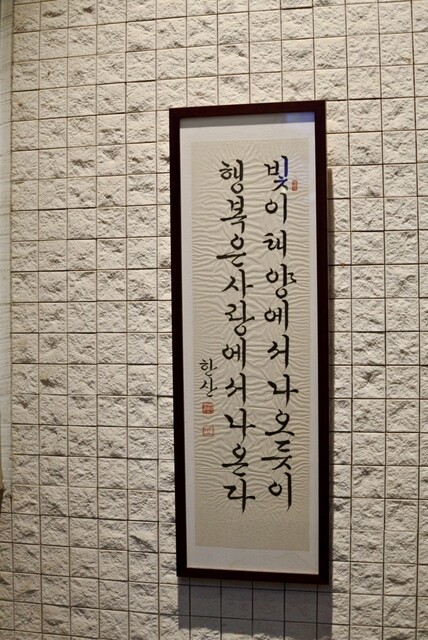 빛이태양에서나오듯이
행복은사랑에서나온다
한산